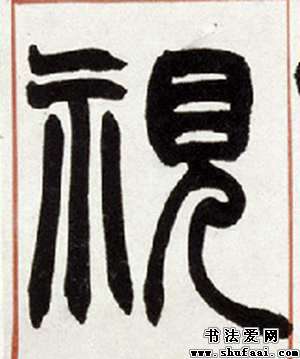 視
书法爱网
www.shufaai.com